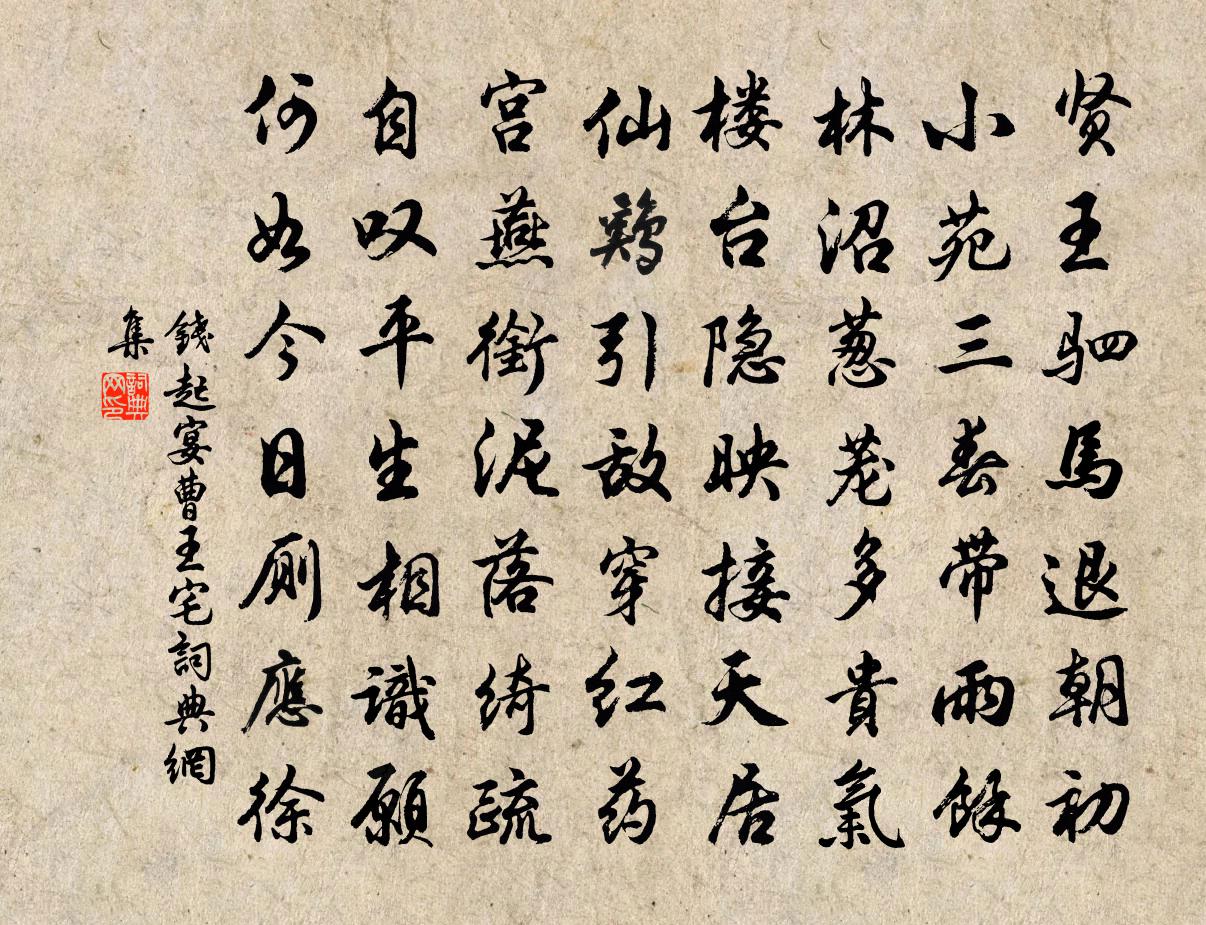 贤王驷馬退朝初
小苑三春带雨餘
林沼葱茏多貴氣
楼台隐映接天居
仙鷄引敌穿红药
宫燕銜泥落绮疏
自叹平生相識願
何如今日厕應徐
錢起宴曹王宅詞典網
集
詞典网印